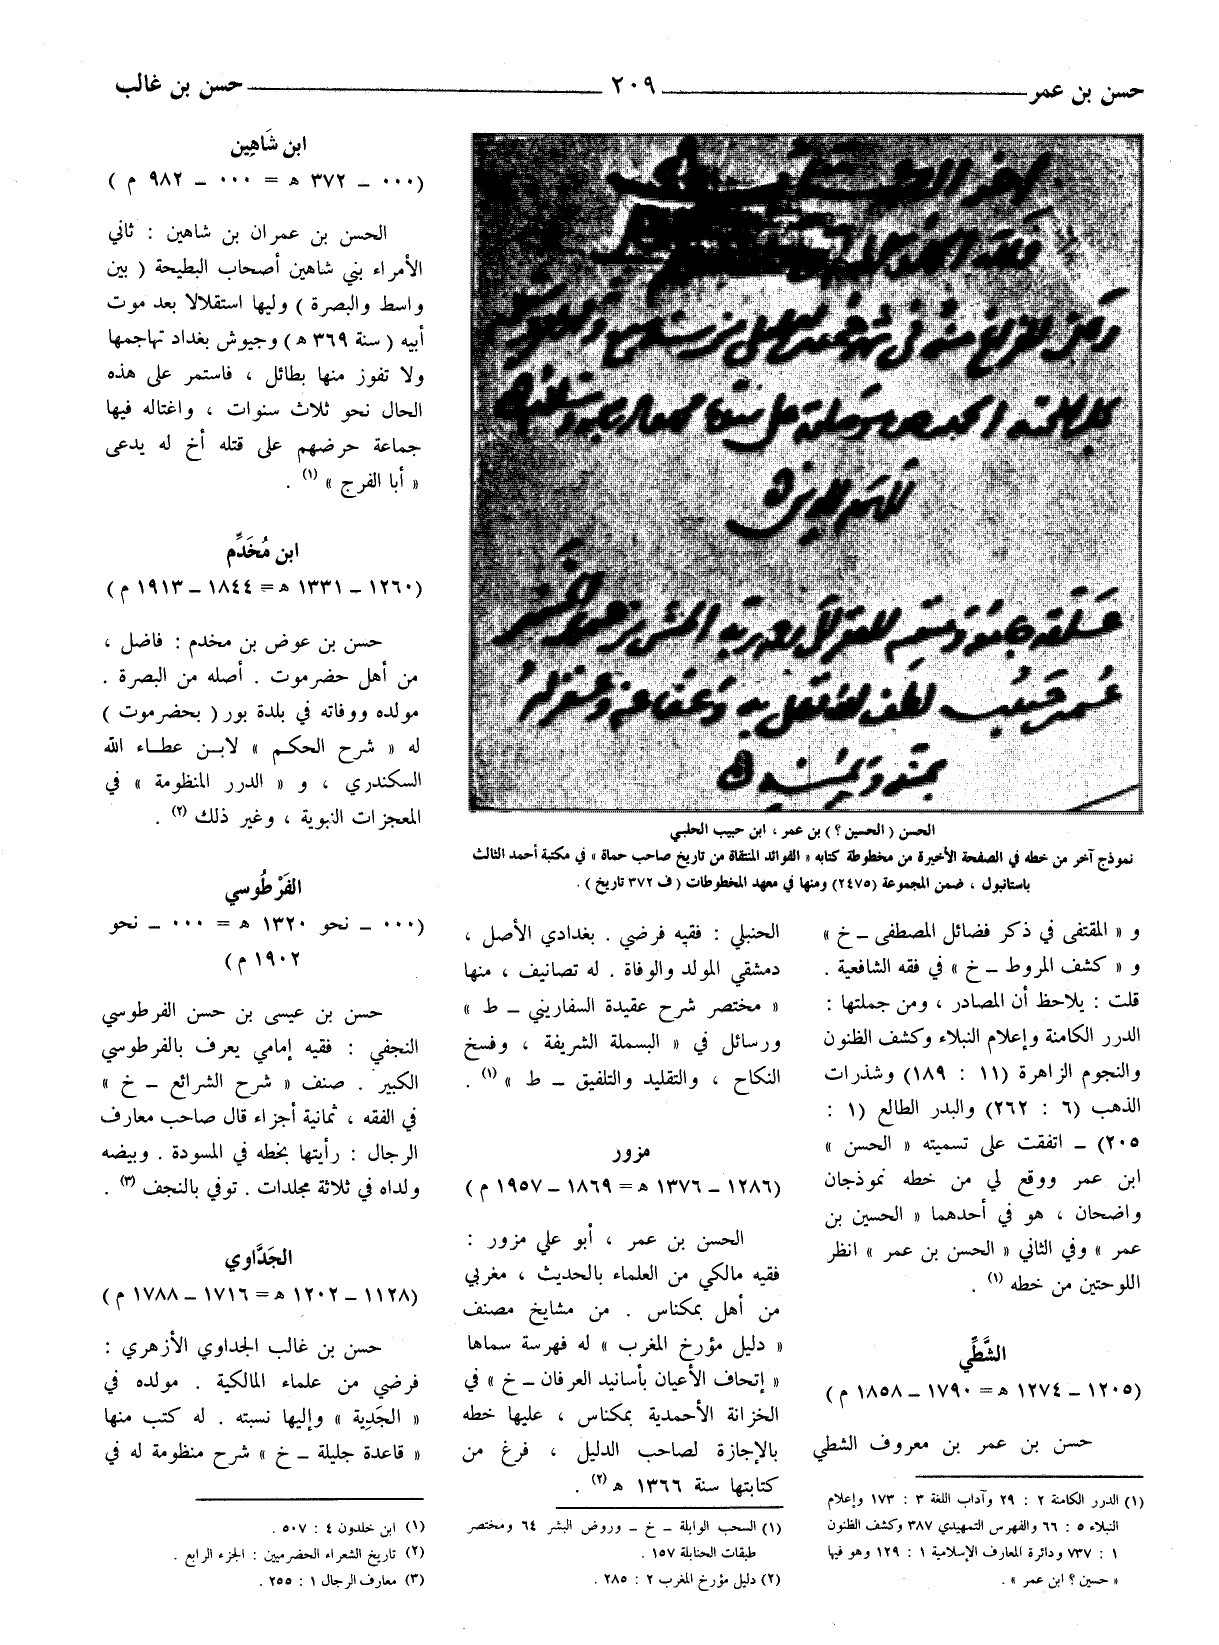 حسن بن عمر ٢٠٩ حسن بن غالب
الحسن ( الحسين ؟ ) بن عمر ، ابن حبيب الحلبي
نموذج آخر من خطه في الصفحة الأخيرة من مخطوطة كتابه « الفوائد المنتقاة من تاريخ صاحب حماة » في مكتبة أحمد الثالث
باستانبول ، ضمن المجموعة (٢٤٧٥) ومنها في معهد المخطوطات ( ف ٣٧٢ تاريخ ) .
و « المقتفى في ذكر فضائل المصطفى ــ خ »
و « كشف المروط ــ خ » في فقه الشافعية .
قلت : يلاحظ أن المصادر ، ومن جملتها :
الدرر الكامنة وإعلام النبلاء وكشف الظنون
والنجوم الزاهرة (١١ : ١٨٩) وشذرات
الذهب (٦ : ٢٦٢) والبدر الطالع (١ :
٢٠٥) ــ اتفقت على تسميته « الحسن »
ابن عمر ووقع لي من خطه نموذجان
واضحان ، هو في أحدهما « الحسين بن
عمر » وفي الثاني « الحسن بن عمر » انظر
اللوحتين من خطه (١) .
الشَّطِّي
(١٢٠٥ ــ ١٢٧٤ هـ = ١٧٩٠ ــ ١٨٥٨ م )
حسن بن عمر بن معروف الشطي
(١) الدرر الكامنة ٢ : ٢٩ وآداب اللغة ٣ : ١٧٣ وإعلام
النبلاء ٥ : ٦٦ والفهرس التمهيدي ٣٨٧ وكشف الظنون
١ : ٧٣٧ ودائرة المعارف الإسلامية ١ : ١٢٩ وهو فيها
« حسين ؟ ابن عمر » .
الحنبلي : فقيه فرضي . بغدادي الأصل ،
دمشقي المولد والوفاة . له تصانيف ، منها
« مختصر شرح عقيدة السفاريني ــ ط »
ورسائل في « البسملة الشريفة ، وفسخ
النكاح ، والتقليد والتلفيق ــ ط » (١) .
مزور
(١٢٨٦ ــ ١٣٧٦ هـ = ١٨٦٩ ــ ١٩٥٧ م )
الحسن بن عمر ، أبو علي مزور :
فقيه مالكي من العلماء بالحديث ، مغربي
من أهل بمكناس . من مشايخ مصنف
« دليل مؤرخ المغرب » له فهرسة سماها
« إتحاف الأعيان بأسانيد العرفان ــ خ » في
الخزانة الأحمدية بمكناس ، عليها خطه
بالإجازة لصاحب الدليل ، فرغ من
كتابتها سنة ١٣٦٦ هـ (٢) .
(١) السحب الوابلة ــ خ ــ وروض البشر ٦٤ ومختصر
طبقات الحنابلة ١٥٧ .
(٢) دليل مؤرخ المغرب ٢ : ٢٨٥ .
ابن شَاهِين
(٠٠٠ ــ ٣٧٢ هـ = ٠٠٠ ــ ٩٨٢ م )
الحسن بن عمران بن شاهين : ثاني
الأمراء بني شاهين أصحاب البطيحة ( بين
واسط والبصرة ) وليها استقلالا بعد موت
أبيه ( سنة ٣٦٩ هـ ) وجيوش بغداد تهاجمها
ولا تفوز منها بطائل ، فاستمر على هذه
الحال نحو ثلاث سنوات ، واغتاله فيها
جماعة حرضهم على قتله أخ له يدعى
« أبا الفرج » (١) .
ابن مُخَدِّم
(١٢٦٠ ــ ١٣٣١ هـ = ١٨٤٤ ــ ١٩١٣ م )
حسن بن عوض بن مخدم : فاضل ،
من أهل حضرموت . أصله من البصرة .
مولده ووفاته في بلدة بور ( بحضرموت )
له « شرح الحكم » لابن عطاء الله
السكندري ، و « الدرر المنظومة » في
المعجزات النبوية ، وغير ذلك (٢) .
الفَرْطُوسي
(٠٠٠ ــ نحو ١٣٢٠ هـ = ٠٠٠ ــ نحو
١٩٠٢ م )
حسن بن عيسى بن حسن الفرطوسي
النجفي : فقيه إمامي يعرف بالفرطوسي
الكبير . صنف « شرح الشرائع ــ خ »
في الفقه ، ثمانية أجزاء قال صاحب معارف
الرجال : رأيتها بخطه في المسودة . وبيضه
ولداه في ثلاثة مجلدات . توفي بالنجف (٣) .
الجَدَّاوي
(١١٢٨ ــ ١٢٠٢ هـ = ١٧١٦ ــ ١٧٨٨ م )
حسن بن غالب الجداوي الأزهري :
فرضي من علماء المالكية . مولده في
« الجَدِية » وإليها نسبته . له كتب منها
« قاعدة جليلة ــ خ » شرح منظومة له في
(١) ابن خلدون ٤ : ٥٠٧ .
(٢) تاريخ الشعراء الحضرميين : الجزء الرابع .
(٣) معارف الرجال ١ : ٢٥٥ .